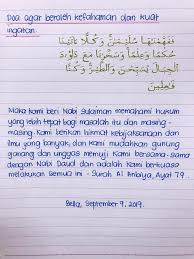 Doa agar beroleh kefahaman dan kuat
ingatan
فَفَهَّمْنَاهَا سُلَيْمَانَ وَكُلًّا آتَيْنَا
حُكْمًا وَعِلْمًا وَسَخَّرْنَا مَعَ دَاوُودَ
الْجِبَالَ يُسَبِّحْنَ وَالطَّيْرَ وَكُنَّا
فَاعِلِينَ
Maka Kami beri Nabi Sulaiman memahami hukum
yang lebih tepat bagi masalah itu dan masing-
masing Kami berikan hikmat kebijaksanaan dan
ilmu yang banyak, dan Kami mudahkan gunung
ganang dan unggas memuji Kami bersama-sama
dengan Nabi Daud dan adalah Kami berkuasa
melakukan semua ini - Surah Al Anbiya, Ayat 79.
Bella, September 9, 2019.